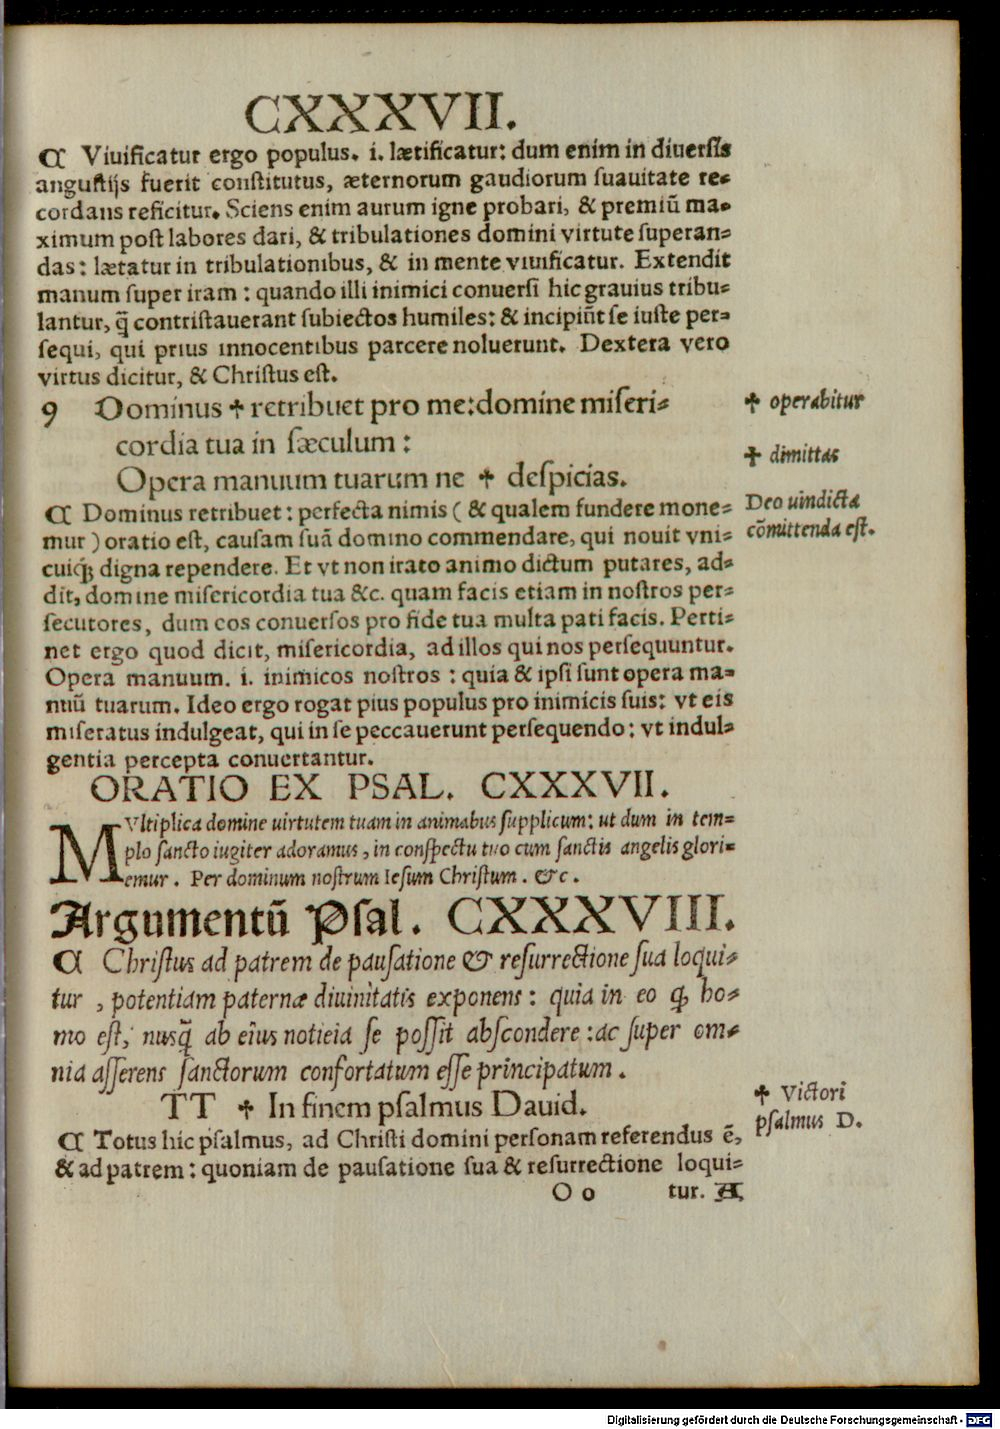 CXXXVII.
¶ Viuificatur ergo populus. i. lætificatur: dum enim in diuersis
angustijs fuerit constitutus, æternorum gaudiorum suauitate re-
cordans reficitur. Sciens enim aurum igne probari, & premiũ ma-
ximum post labores dari, & tribulationes domini virtute superan-
das: lætatur in tribulationibus, & in mente viuificatur. Extendit
manum super iram: quando illi inimici conuersi hic grauius tribu-
lantur, q̃ contristauerant subiectos humiles: & incipiñt se iuste per-
sequi, qui prius innocentibus parcere noluerunt. Dextera vero
virtus dicitur, & Christus est.
9 Dominus ✝ retribuet pro me: domine miseri-
cordia tua in sæculum:
Opera manuum tuarum ne ✝ despicias.
✝ operabitur
✝ dimittas
¶ Dominus retribuet: perfecta nimis (& qualem fundere mone-
mur) oratio est, causam suã domino commendare, qui nouit vni-
cuiq; digna rependere. Et vt non irato animo dictum putares, ad-
dit, domine misericordia tua &c. quam facis etiam in nostros per-
secutores, dum eos conuersos pro fide tua multa pati facis. Perti-
net ergo quod dicit, misericordia, ad illos qui nos persequuntur.
Opera manuum. i. inimicos nostros: quia & ipsi sunt opera ma-
nuũ tuarum. Ideo ergo rogat pius populus pro inimicis suis: vt eis
miseratus indulgeat, qui in se peccauerunt persequendo: vt indul-
gentia percepta conuertantur.
Deo uindicta
cõmittenda est.
ORATIO EX PSAL. CXXXVII.
MVltiplica domine uirtutem tuam in animabus supplicum: ut dum in tem-
plo sancto iugiter adoramus, in conspectu tuo cum sanctis angelis glori-
emur. Per dominum nostrum Iesum Christum. &c.
Argumentũ Psal. CXXXVIII.
¶ Christus ad patrem de pausatione & resurrectione sua loqui-
tur, potentiam paternæ diuinitatis exponens: quia in eo ꝙ ho-
mo est, nusq̃ ab eius noticia se possit abscondere: ac super om-
nia asserens sanctorum confortatum esse principatum.
TT ✝ In finem psalmus Dauid.
✝ Victori
psalmus D.
¶ Totus hic psalmus, ad Christi domini personam referendus ẽ,
& ad patrem: quoniam de pausatione sua & resurrectione loqui-
O o tur. A
Digitalisierung gefördert durch die Deutsche Forschungsgemeinschaft - DFG